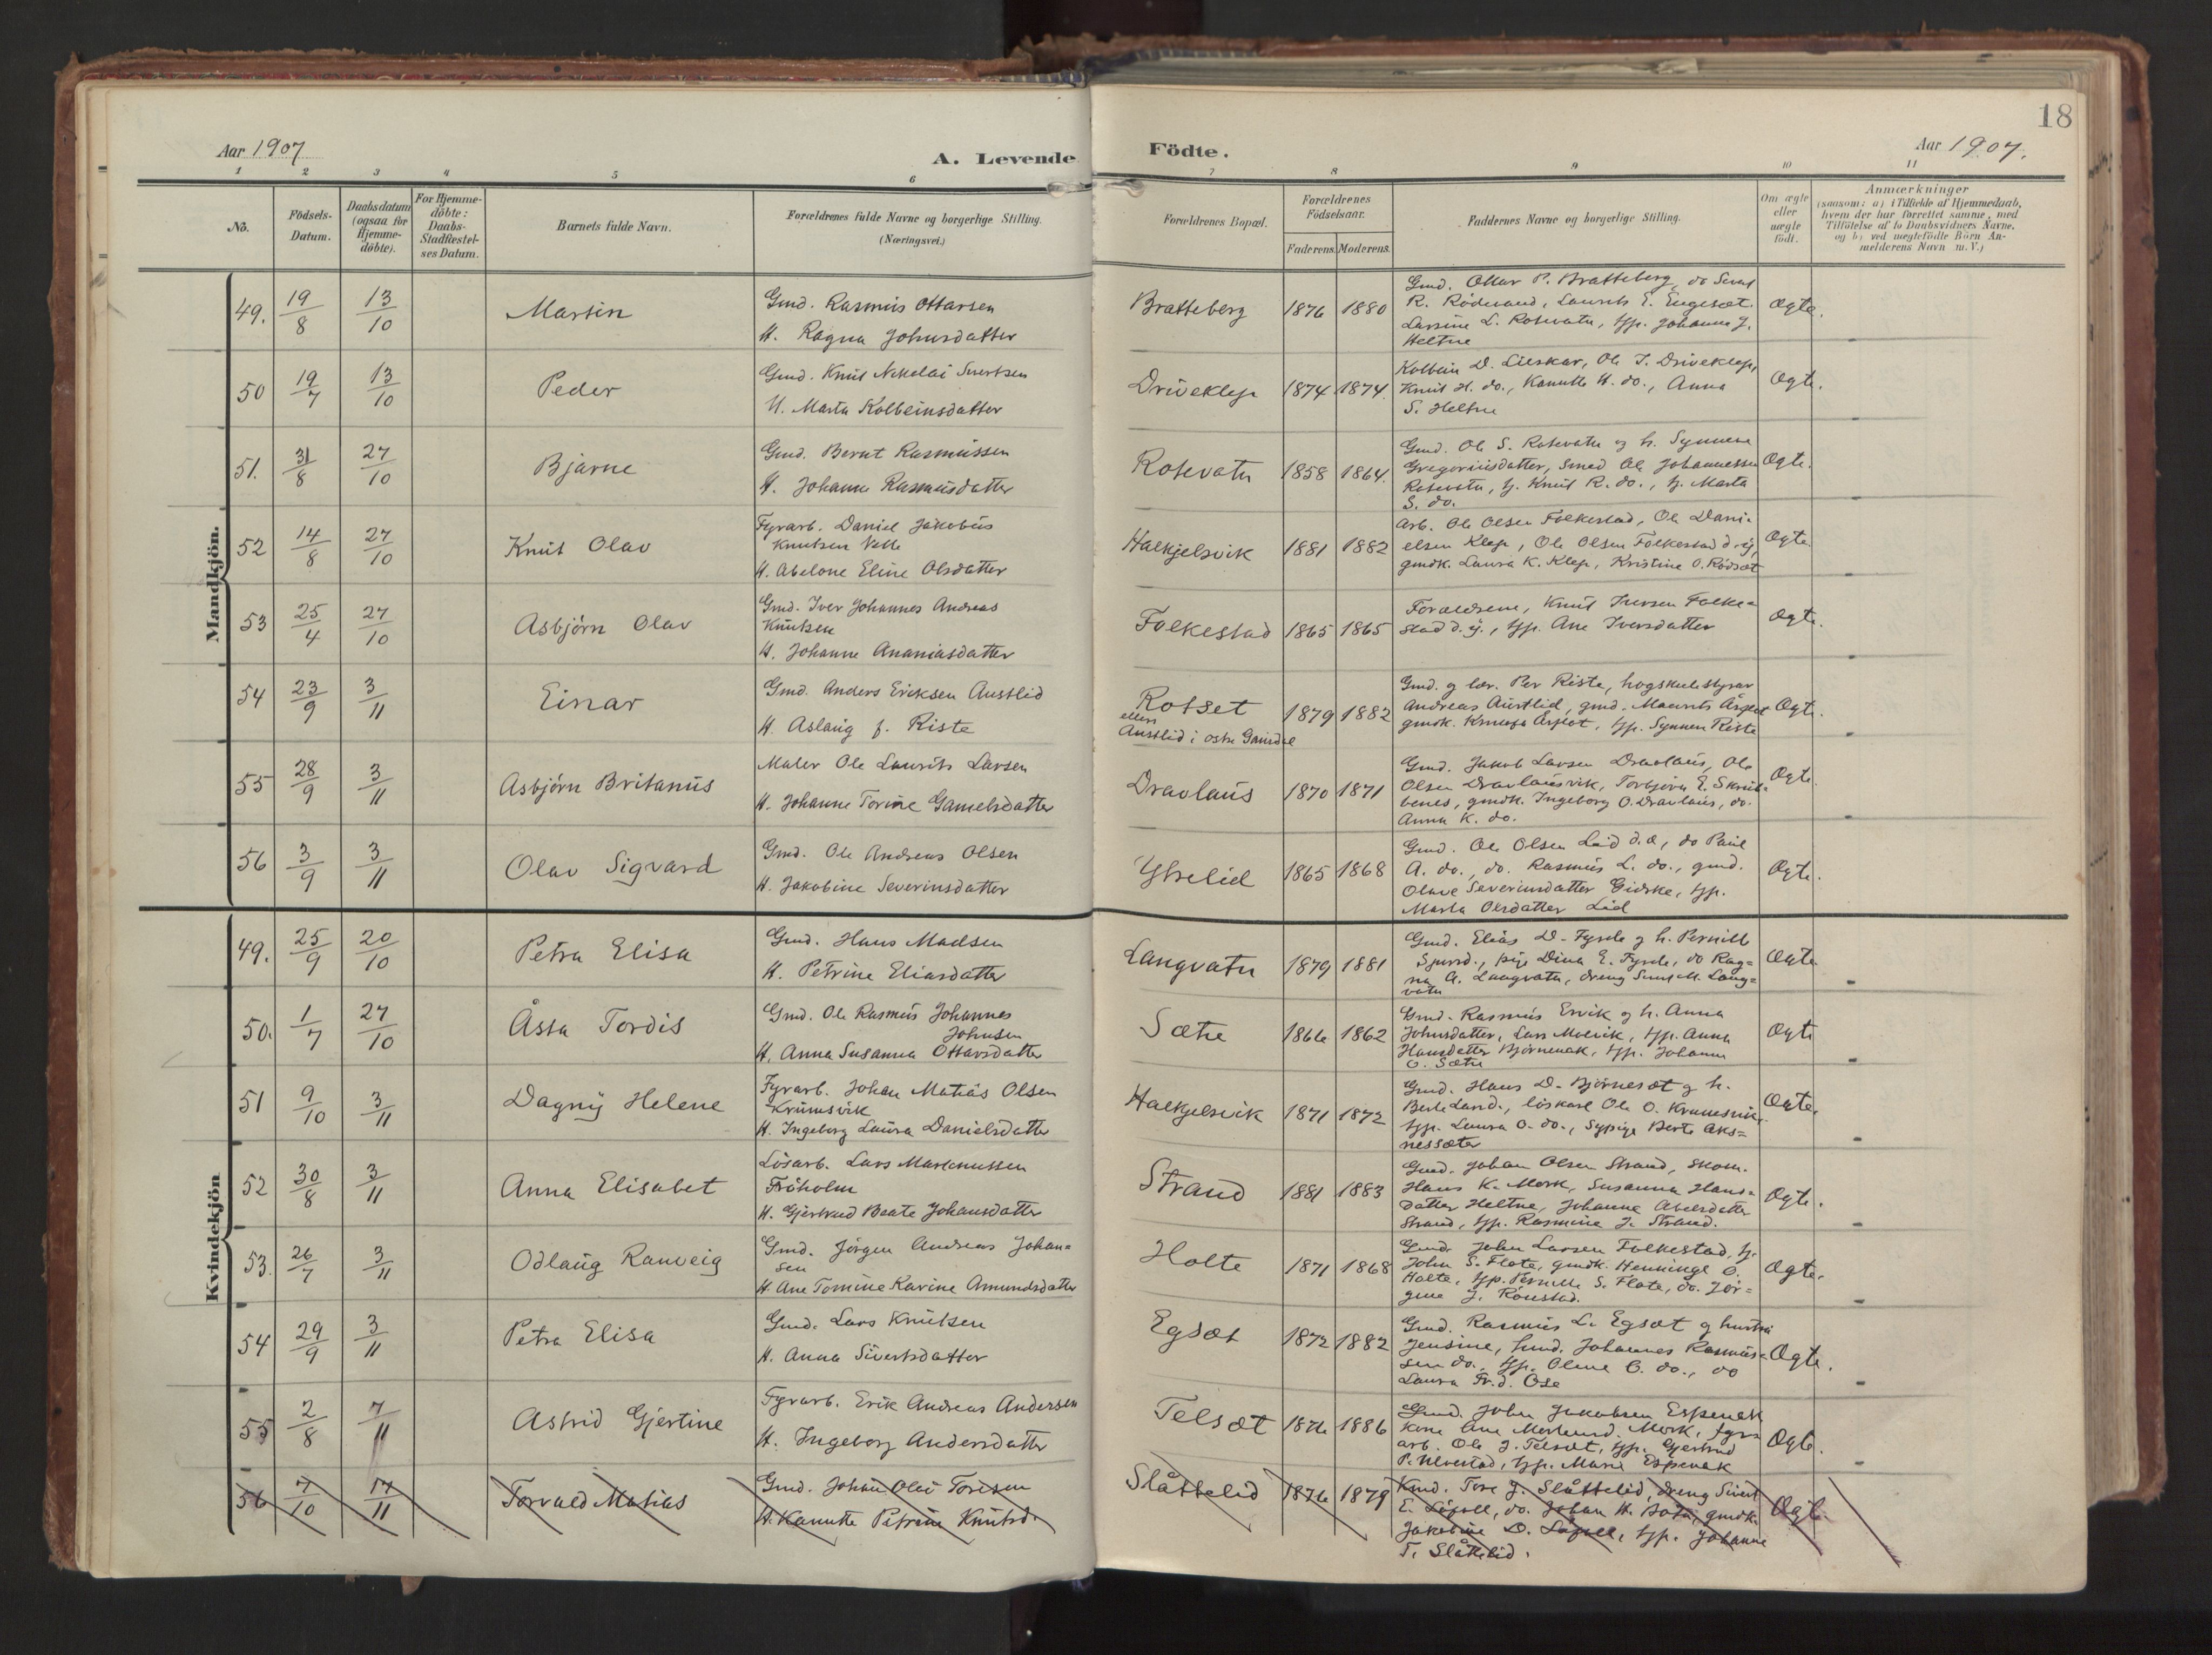 18
Aar 1907
A. Levende Födte.
Aar 1907.
1 2 3 4 5 6 7 8 9 10 11
No.
Födsels-Datum.
Daabsdatum (ogsaa for Hjemme-döbte).
For Hjemme-döbte: Daabs-Stadfæstel-ses Datum.
Barnets fulde Navn.
Forældrenes fulde Navne og borgerlige Stilling. (Næringsvei.)
Forældrenes Bopæl.
Forældrenes Födselsaar.
Faderens. Moderens.
Faddernes Navne og borgerlige Stilling.
Om ægte eller uægte födt.
Anmærkninger (saasom: a) i Tilfælde af Hjemmedaab, hvem der har forrettet samme, med Tilföielse af to Daabsvidners Navne, og b) ved uægtefödte Börn An-melderens Navn m. V.)
Mandkjön.
49. 19/8 13/10 Martin
Gmd. Rasmus Ottarsen
H. Ragna Johnsdatter
Bratteberg 1876 1880
Gmd. Ottar P. Bratteberg, do
R. Rödsand, Laurits E. Engeset.
Larsine L. Rotevatn, tjp. Johanne J.
Heltne
Ægte.
50 19/7 13/10 Peder
Gmd. Knut Nikolai Sivertsen
H. Marta Kolbeinsdatter
Driveklep 1874 1874.
Kolbein D. Lieskar, Ole J. Driveklep,
Knut H. do., Kanutte H. do., Anna
S. Heltne
Ægte.
51. 31/8 27/10 Bjarne
Gmd. Bernt Rasmussen
H. Johanne Rasmusdatter
Rotevatn 1858 1864.
Gmd. Ole S. Rotevatn og h. Synneve
Gregoriusdatter, Smed Ole Johannessen
Rotevatn, tj. Knut R. do., tj. Marta
S. do.
Ægte.
52 14/8 27/10 Knut Olav
Fyrarb. Daniel Jakobus
Knutsen Velle
H. Abelone Eline Olsdatter
Halkjelsvik 1881 1882
Arb. Ole Olsen Folkestad, Ole Dani-
elsen Klep, Ole Olsen Folkestad d. y,
gmdk. Laura K. Klep, Kristine O. Rödsæt
Ægte.
53 25/4 27/10 Asbjörn Olav
Gmd. Iver Johannes Andreas
Knutsen
H. Johanne Ananiasdatter
Folkestad 1865 1865
Forældrene, Knut Iversen Folke=
stad d. y., tjp. Ane Iversdatter
Ægte.
54 23/9 3/11 Einar
Gmd. Anders Eriksen Austlid
H. Aslaug f. Riste
Rotset
ellers
Austlid i östre Gausdal
1879 1882
Gmd. og lær. Per Riste, högskulestyrar
Andreas Austlid, gmd. Maurits Aaflot
gmdk. Aaflot, tjp. Synnøv Riste
Ægte.
55 28/9 3/11 Asbjörn Britanus
Maler Ole Laurits Larsen
H. Johanne Torine Gamelsdatter
Dravlaus 1870 1871
Gmd. Jakob Larsen Dravlaus, Ole
Olsen Dravlausvik, Torbjörn E. Skrub-
benes, gmdk. Ingeborg O. Dravlaus, do.
Anna K. do.
Ægte.
56 3/9 3/11 Olav Sigvard
Gmd. Ole Andreas Olsen
H. Jakobine Severinsdatter
Ytrelid 1865 1868
Gmd. Ole Olsen Lid d.æ, do Paul
A. do., do. Rasmus L. do., gmd.
Olave Severinsdatter Gidske, tjp.
Marta Olsdatter Lid
Ægte.
Kvindekjön
49. 25/9 20/10 Petra Elisa
Gmd. Hans Madsen
H. Petrine Eliasdatter
Langvatn 1879 1881
Gmd. Elias D. Fyrde og h. Pernille
Sjursd., pige Dina E. Fyrde, do Rag=
na A. Langvatn, dreng M. Lang=
vatn
Ægte
50. 1/7 27/10 Åsta Tordis
Gmd. Ole Rasmus Johannes
Johnsen
H. Anna Susanna Ottarsdatter
Sætre 1866 1862
Gmd. Rasmus Ervik og h. Anna
Johnsdatter, Lars Molvik, tjp. Anna
Hansdatter Björnenak, tjp. Johanne
O. Sætre
Ægte
51 9/10 3/11 Dagny Helene
Fyrarb. Johan Matias Olsen
Krumsvik
H. Ingeborg Laura Danielsdatter
Halkjelsvik 1871 1872
Gmd. Hans D. Björneset og h.
Berte Larsd., löskarl Ole O. Krumsvik,
tjp. Laura O. do., Sypige Berte Aks=
nessæter
Ægte
52 30/8 3/11 Anna Elisabet
Lösarb. Lars Martinussen
Fröholm
H. Gjertrud Beate Johansdatter
Strand 1881 1883
Gmd. Johan Olsen Strand, skom.
Hans K. Mork, Susanna Hans=
datter Heltne, Johanne Abelsdatter
Strand, tjp. Rasmine J. Strand.
Ægte.
53. 26/7 3/11 Odlaug Ranveig
Gmd. Jörgen Andreas Johan=
sen
H. Ane Tomine Karine Amundsdatter
Holte 1871 1868
Gmd. John Larsen Folkestad, tj.
John S. Flote, gmdk. Henninge O.
Holte, tjp. Pernille S. Flote, do. Jör=
gine J. Raustad.
Ægte.
54 29/9 3/11 Petra Elisa
Gmd. Lars Knutsen
H. Anna Sivertsdatter
Egset 1872 1882
Gmd. Rasmus L. Egsæt og hustru
Jensine, Gmd. Johannes Rasmus=
sen do., tjp. Oline O. do., do
Laura Fr.d. Ose
Ægte.
55 2/8 7/11 Astrid Gjertine
Fyrarb. Erik Andreas Andersen
H. Ingeborg Andersdatter
Telsæt 1876 1886
Gmd. John Jakobsen Espenak
Kone Ane Mork, fyr=
arb. Ole J. Telsæt, tjp. Gjertrud
P. Ulvestad, tjp. Marie Espenak
Ægte.
56 7/10 17/11 Torvald Matias
Gmd. Johan Olav Toresen
H. Kanutte Petrine Knutsd.
Slåttelid 1876 1879
Gmd. Tore J. Slåttelid, dreng Sivert
E. Löfoll, do. Johan H. gmdk.
Jakobine D. Löfoll, tjp. Johanne
T. Slåttelid.
Ægte.